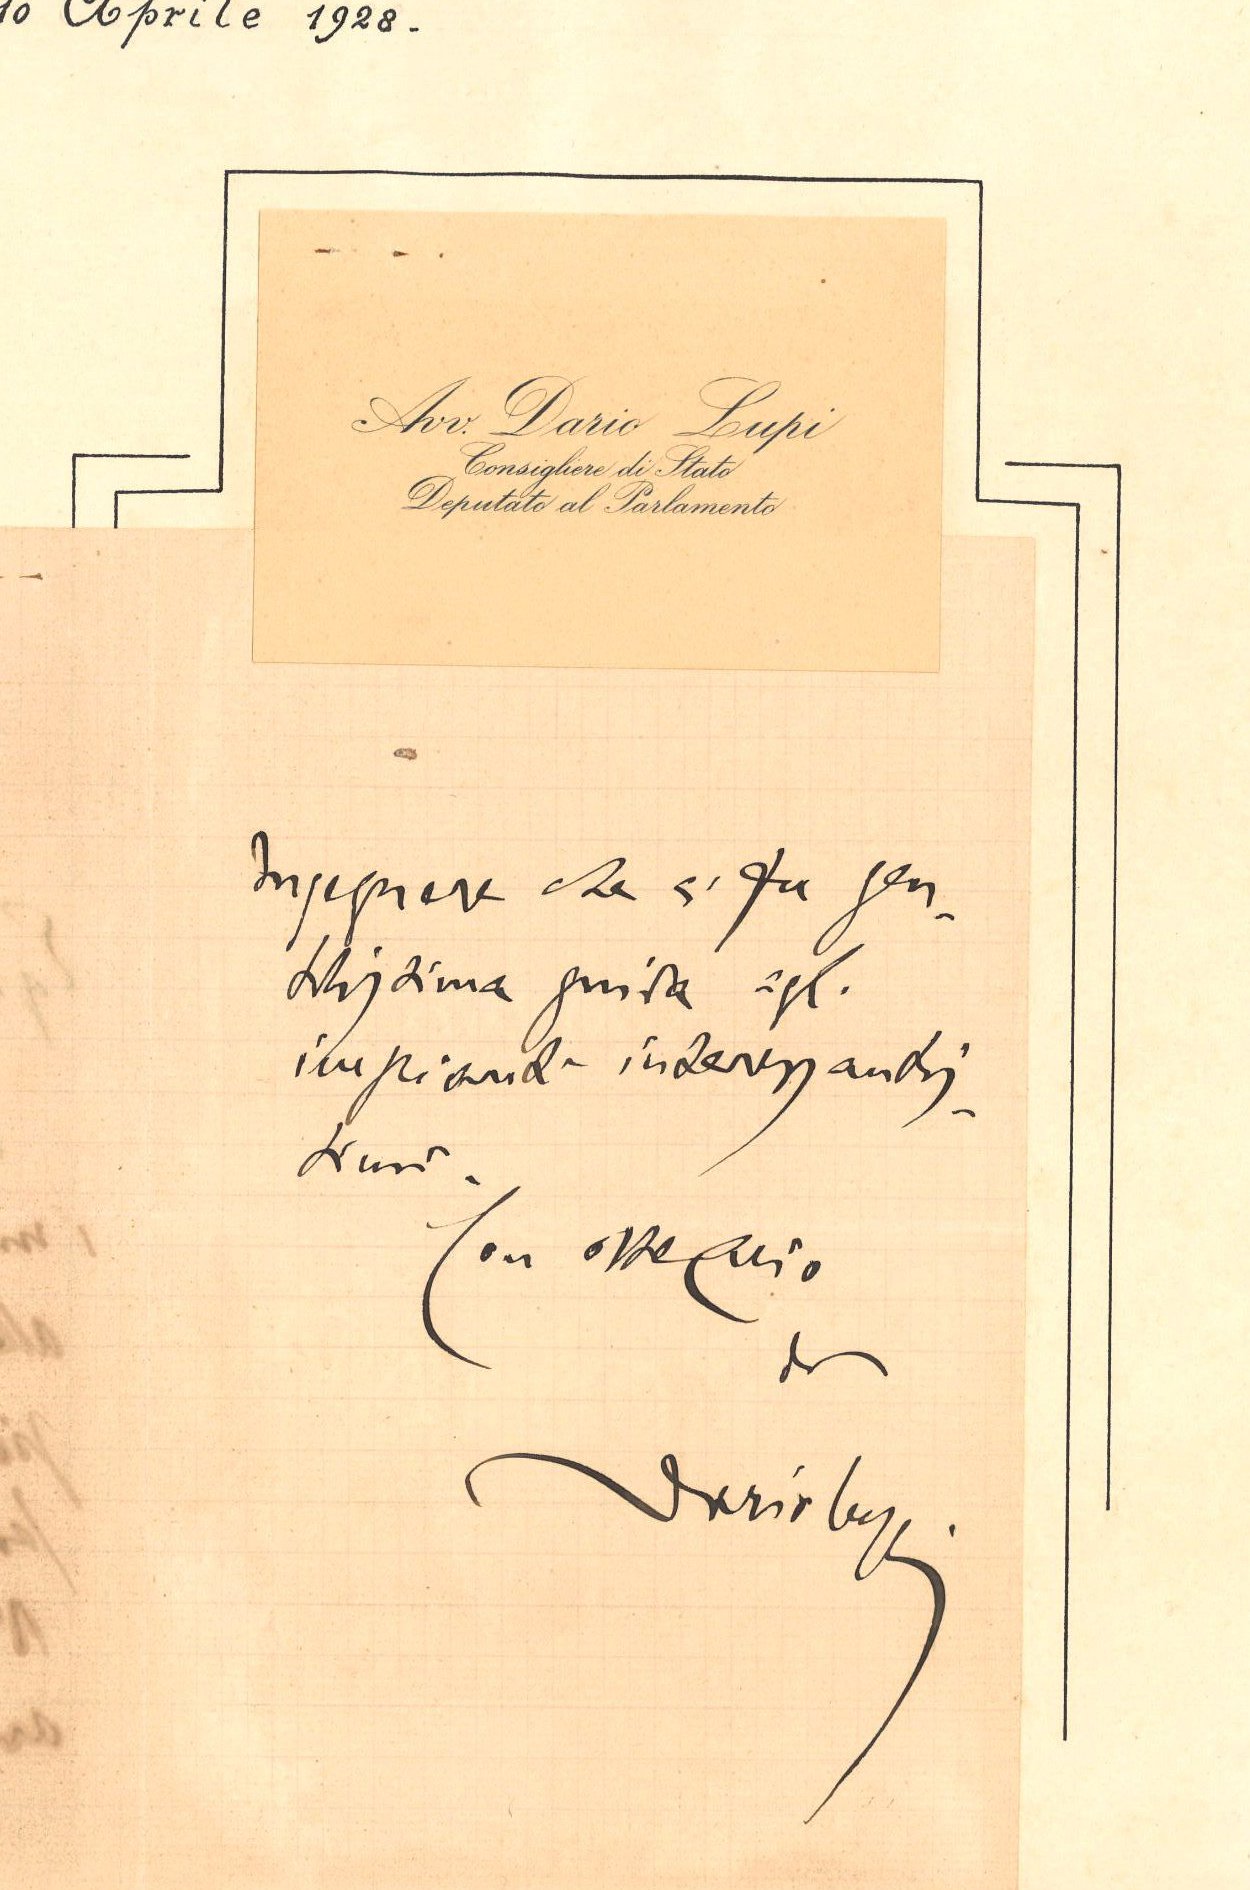 10 Aprile 1928.
Avv. Dario Lupi
Consigliere di Stato
Deputato al Parlamento
Ingegnere che ci fu gen-
tilissima guida agl'
impianti interessantis-
simi.
Con ossequio
Dario Lupi.